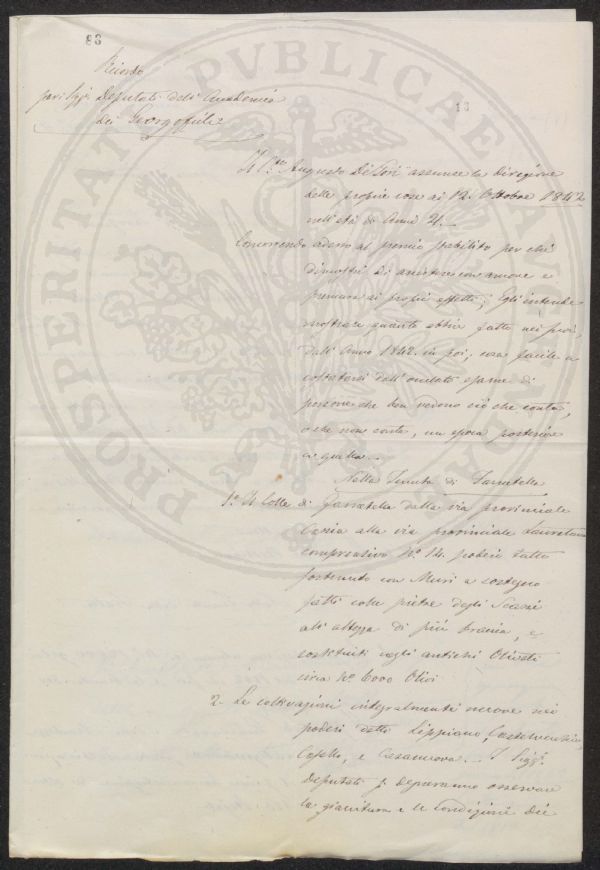 83
13
Ricordo
per i Sigg.i Deputati dell'Accademia
dei Georgofili
PROSPERITATI PVBLICAE AVGENDAE
Il C.re Augusto De' Gori assunse la direzione
delle proprie cose ai 12. Ottobre 1842
nell'età di Anni 21.
Concorrendo adesso al premio stabilito per chi
dimostri di assistere con amore e
premura ai propri effetti; Egli intende
mostrare quanto abbia fatto nei suoi,
dall'Anno 1842. in poi; cosa facile a
costatarsi dall'oculato esame di
persone che ben vedono ciò che conta,
o che non conta, un epoca posteriore
a quella.
Nella Tenuta di
1.o Il Colle di dalla via provinciale
Cassia alla via provinciale Lauretana
comprensivo N.o 14. poderi tutto
sostenuto con Muri a sostegno
fatti colle pietre degli Scassi
all'altezza di più braccia, e
costituiti negli antichi Oliveti
circa N.o 6000 Olivi
2. Le coltivazioni integralmente nuove nei
poderi detti Lippiano,
e Casanuova. I Sigg.i
Deputati si degneranno osservare
la giacitura e le condizioni dei